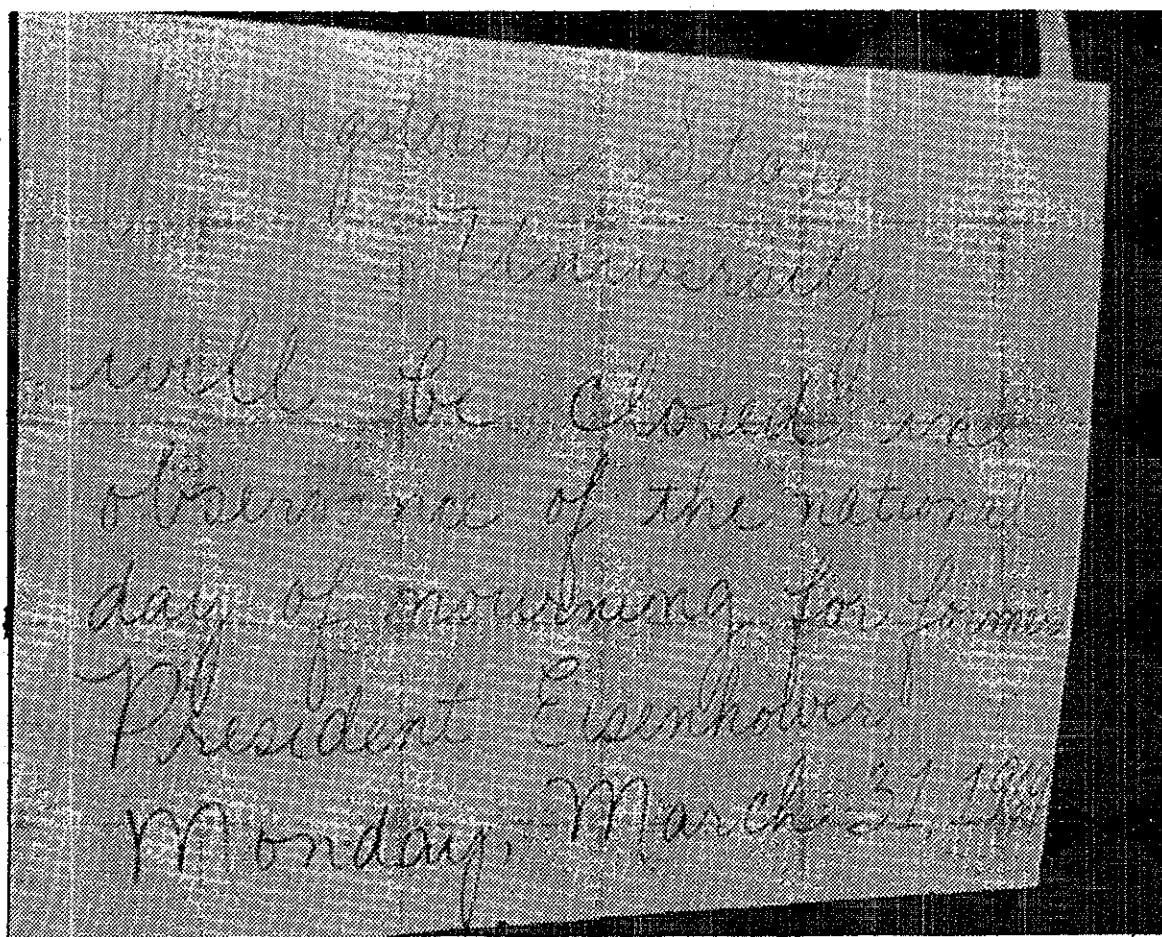 Youngstown State
University
will be closed in
observance of the national
day of mourning for former
President Eisenhower
Monday, March 31, 1969